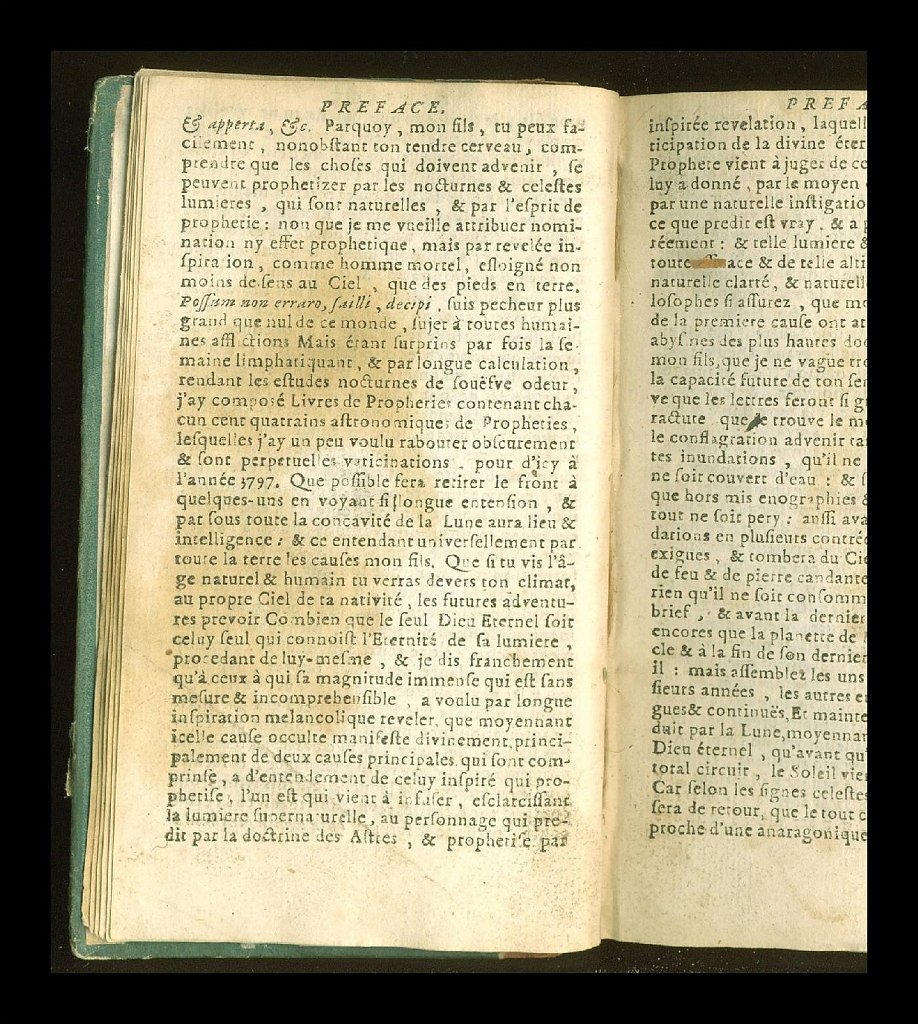 PREFACE.
& apperta, &c. Parquoy, mon fils, tu peux fa-
cilement, nonobſtant ton tendre cerveau, com-
prendre que les choſes qui doivent advenir, ſe
peuvent prophetizer par les nocturnes & celeſtes
lumieres, qui ſont naturelles, & par l'eſprit de
prophetie: non que je me vueille attribuer nomi-
nation ny effet prophetique, mais par revelée in-
ſpiration, comme homme mortel, eſloigné non
moins de ſens au Ciel, que des pieds en terre.
Poſſum non erraro, failli, decipi, ſuis pecheur plus
grand que nul de ce monde, ſujet à toutes humai-
nes afflictions Mais étant ſurprins par fois la ſe-
maine limphatiquant, & par longue calculation,
rendant les eſtudes nocturnes de ſouëfve odeur,
j'ay composé Livres de Propheties contenant cha-
cun cent quatrains aſtronomiques de Propheties,
leſquelles j'ay un peu voulu rabouter obſcurement
& ſont perpetuelles vaticinations. pour d'icy à
l'année 3797. Que poſſible fera retirer le front à
quelques-uns en voyant ſi longue extenſion, &
par ſous toute la concavité de la Lune aura lieu &
intelligence: & ce entendant univerſellement par
toute la terre les cauſes mon fils. Que ſi tu vis l'â-
ge naturel & humain tu verras devers ton climat,
au propre Ciel de ta nativité, les futures adventu-
res prevoir Combien que le ſeul Dieu Eternel ſoit
celuy ſeul qui connoiſt l'Eternité de ſa lumiere,
procedant de luy-meſme, & je dis franchement
qu'à ceux à qui ſa magnitude immenſe qui eſt ſans
meſure & incomprehenſible, a voulu par longue
inſpiration melancolique reveler, que moyennant
icelle cauſe occulte manifeſte divinement, princi-
palement de deux cauſes principales, qui ſont com-
prinſe, a d'entendement de celuy inſpiré qui pro-
phetiſe, l'un eſt qui vient à infuſer, eſclarciſſant
la lumiere ſupernaturelle, au perſonnage qui pre-
dit par la doctrine des Aſtres, & prophetiſe par
PREFA
inſpirée revelation, laquell
ticipation de la divine éter
Prophete vient à juger de ce
luy a donné, par le moyen
par une naturelle inſtigatio
ce que predit eſt vray, & a p
réement: & telle lumiere &
toute ace & de telle alti
naturelle clarté, & naturell
loſophes ſi aſſurez, que mo
de la premiere cauſe ont at
abyſmes des plus hautes doc
mon fils, que je ne vague tro
la capacité future de ton ſen
ve que les lettres feront ſi gr
racture que je trouve le mo
le conflagration advenir tan
tes inundations, qu'il ne
ne ſoit couvert d'eau: & ſ
que hors mis enographies &
tout ne ſoit pery: auſſi ava
dations en pluſieurs contrée
exigues, & tombera du Cie
de feu & de pierre candante
rien qu'il ne ſoit conſomm
brief, & avant la dernier
encores que la planette de
cle & à la fin de ſon dernier
il: mais aſſemblez les uns
ſieurs années, les autres e
gues& continuës, Et mainte
duit par la Lune, moyennan
Dieu éternel, qu'avant qu'
total circuit, le Soleil vien
Car ſelon les ſignes celeſtes
ſera de retour, que le tout c
proche d'une anaragonique